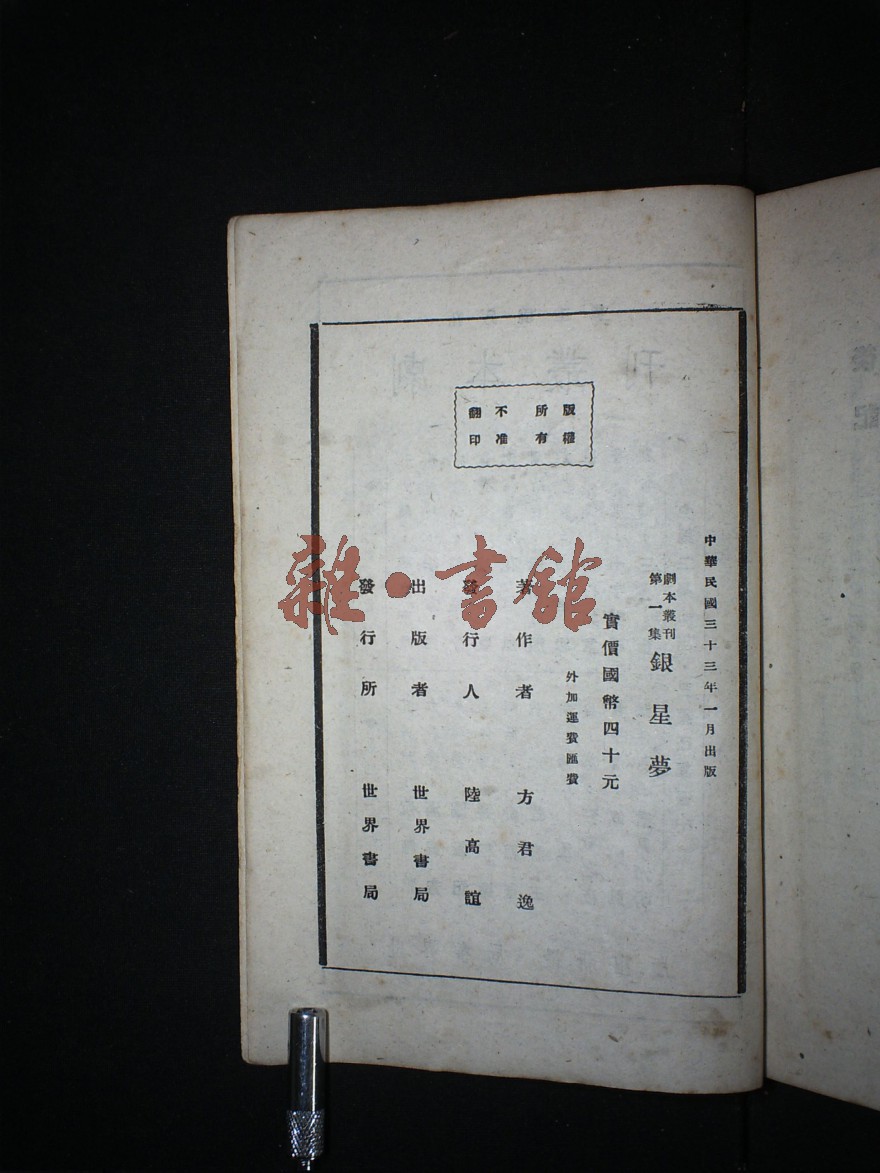 版權所有
不准翻印
中華民國三十三年一月出版
劇本叢刊
第一集
銀星夢
實價國幣四十元
外加運費匯費
著作者 方君逸
發行人 陸高誼
出版者 世界書局
發行所 世界書局
雜·書館
後記
劇本叢刊